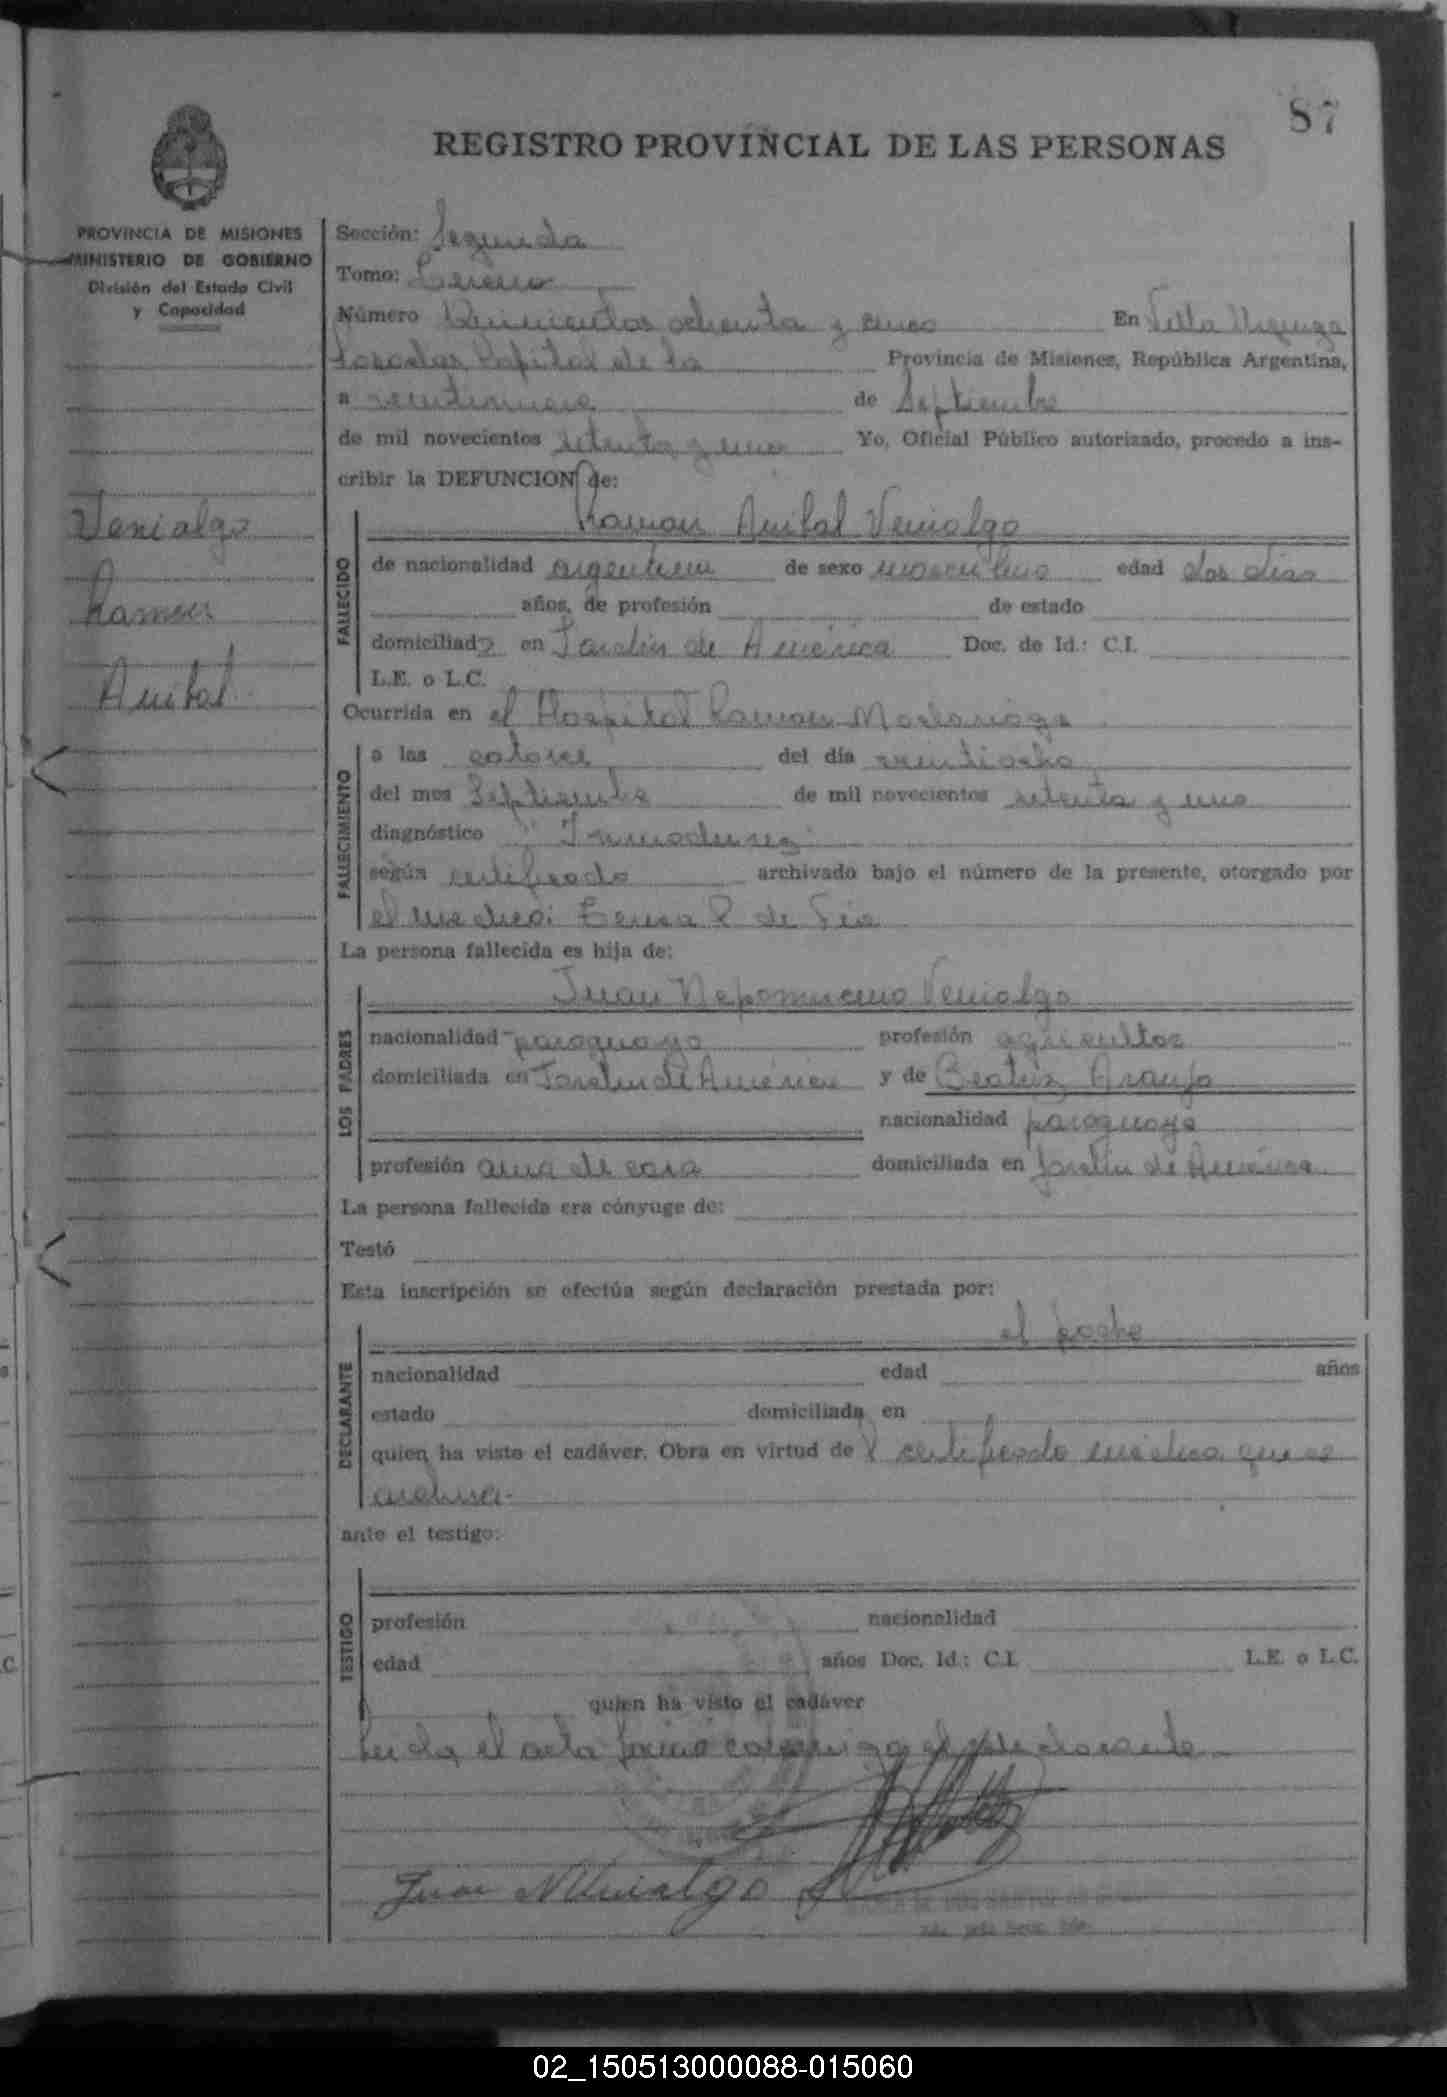 87
REGISTRO PROVINCIAL DE LAS PERSONAS
PROVINCIA DE MISIONES
MINISTERIO DE GOBIERNO
División del Estado Civil
y Capacidad
Venialgo
Ramon
Anibal
Sección: Segunda
Tomo: Tercero
Número Quinientos ochenta y cinco En Villa Urquiza
Posadas Capital de la Provincia de Misiones, República Argentina,
a veintinueve de Septiembre
de mil novecientos setenta y uno Yo, Oficial Público autorizado, procedo a ins-
cribir la DEFUNCION de:
Ramon Anibal Venialgo
FALLECIDO
de nacionalidad argentina de sexo masculino edad dos dias
años, de profesión de estado
domiciliado en Jardin de América Doc. de Id.: C.I.
L.E. o L.C.
Ocurrida en el Hospital Ramon Madariaga
FALLECIMIENTO
a las catorce del día veintiocho
del mes Septiembre de mil novecientos setenta y uno
diagnóstico Inmadurez
según certificado archivado bajo el número de la presente, otorgado por
el medico: de
La persona fallecida es hija de:
LOS PADRES
Juan Nepomuceno Venialgo
nacionalidad paraguayo profesión agricultor
domiciliada en Jardin de América y de Beatriz Araujo
nacionalidad paraguaya
profesión ama de casa domiciliada en Jardin de América
La persona fallecida era cónyuge de:
Testó
Esta inscripción se efectúa según declaración prestada por:
DECLARANTE
el padre
nacionalidad edad años
estado domiciliada en
quien ha visto el cadáver. Obra en virtud del certificado medico que se
archiva.
ante el testigo:
TESTIGO
profesión nacionalidad
edad años Doc. Id.: C.I. L.E. o L.C.
quien ha visto el cadáver
Leida el acta firmó conmigo el declarante
Juan N Venialgo
02_150513000088-015060